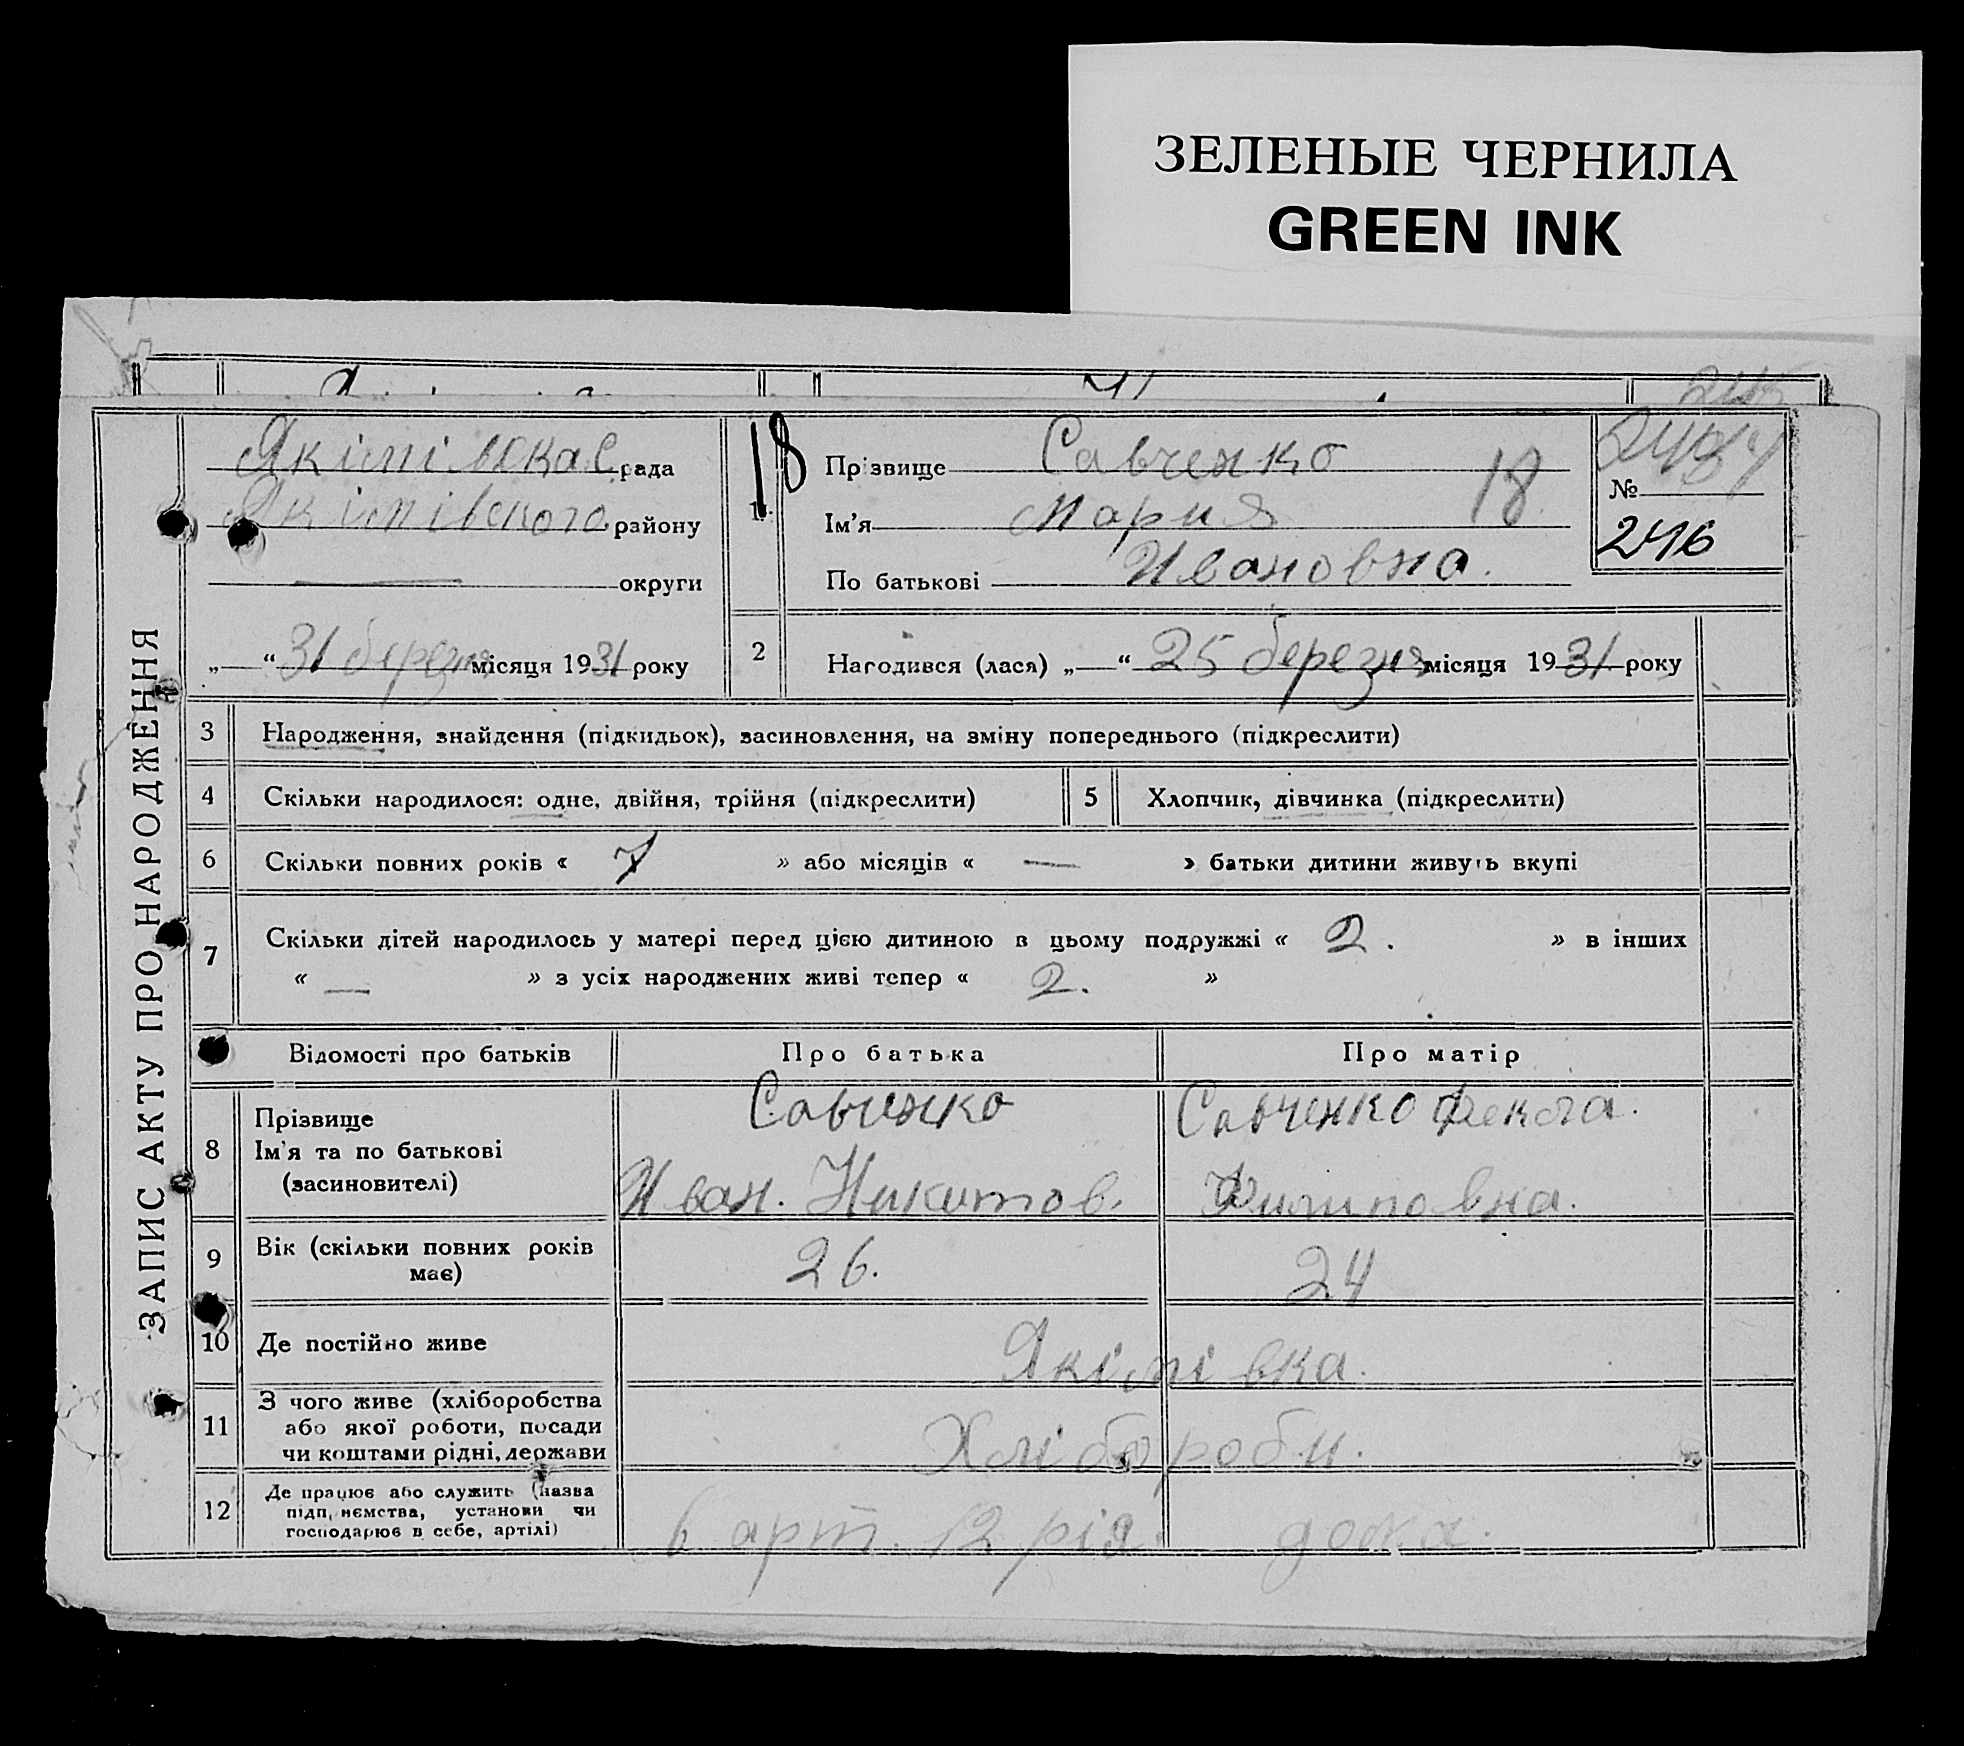 ЗЕЛЕНЫЕ ЧЕРНИЛА
GREEN INK
245
ЗАПИС АКТУ ПРО НАРОДЖЕННЯ
Якімівська С. рада
Якімівського району
— округи
„ — “ 31 березня місяця 1931 року
18
1.
Прізвище Савченко
Ім’я Мария 18
По батькові Ивановна.
№
246
2 Народився (лася) „ — “ 25 березня місяця 1931 року
3 Народження, знайдення (підкидьок), засиновлення, на зміну попереднього (підкреслити)
4 Скільки народилося: одне, двійня, трійня (підкреслити)
5 Хлопчик, дівчинка (підкреслити)
6 Скільки повних років « 7 » або місяців « — » батьки дитини живуть вкупі
7 Скільки дітей народилось у матері перед цією дитиною в цьому подружжі « 2. » в інших
« — » з усіх народжених живі тепер « 2. »
Відомості про батьків Про батька Про матір
8 Прізвище
Ім’я та по батькові
(засиновителі)
Савченко
Иван. Никитов.
Савченко Фекла.
Филиповна.
9 Вік (скільки повних років
має)
26. 24
10 Де постійно живе Якімівка.
11 З чого живе (хліборобства
або якої роботи, посади
чи коштами рідні, держави
Хлібороби.
12 Де працює або служить (назва
підприємства, установи чи
господарює в себе, артілі)
в арт. 12 рія. дома.